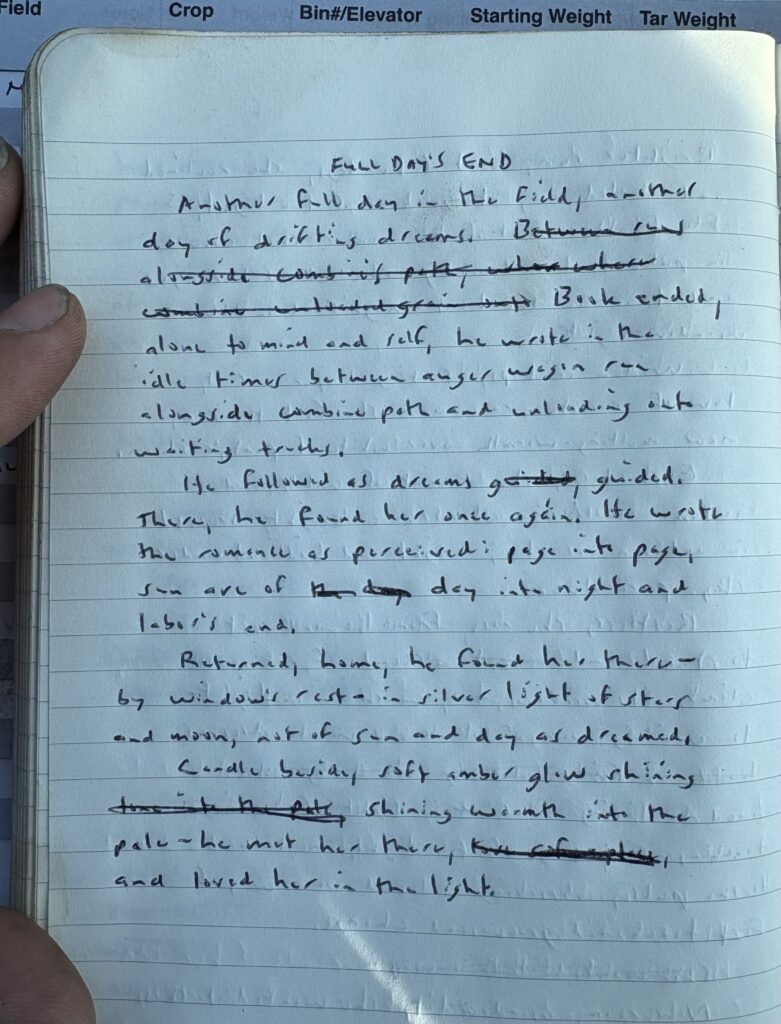 Field Crop Bin#/Elevator Starting Weight Tar Weight
FULL DAY'S END
Another full day in the field, another
day of drifting dreams. Between runs
alongside combine's path, when where
combine unloaded grain onto Book ended,
alone to mind and self, he wrote in the
idle times between auger wagon run
alongside combine path and unloading onto
waiting trucks.
He followed as dreams guided, guided.
There, he found her once again. He wrote
the romance as perceived: page into page,
sun arc of the day day into night and
labor's end.
Returned, home, he found her there-
by window's rest - in silver light of stars
and moon, not of sun and day as dreamed.
Candle beside, soft amber glow shining
tone into the pale, shining warmth into the
pale - he met her there,
and loved her in the light.